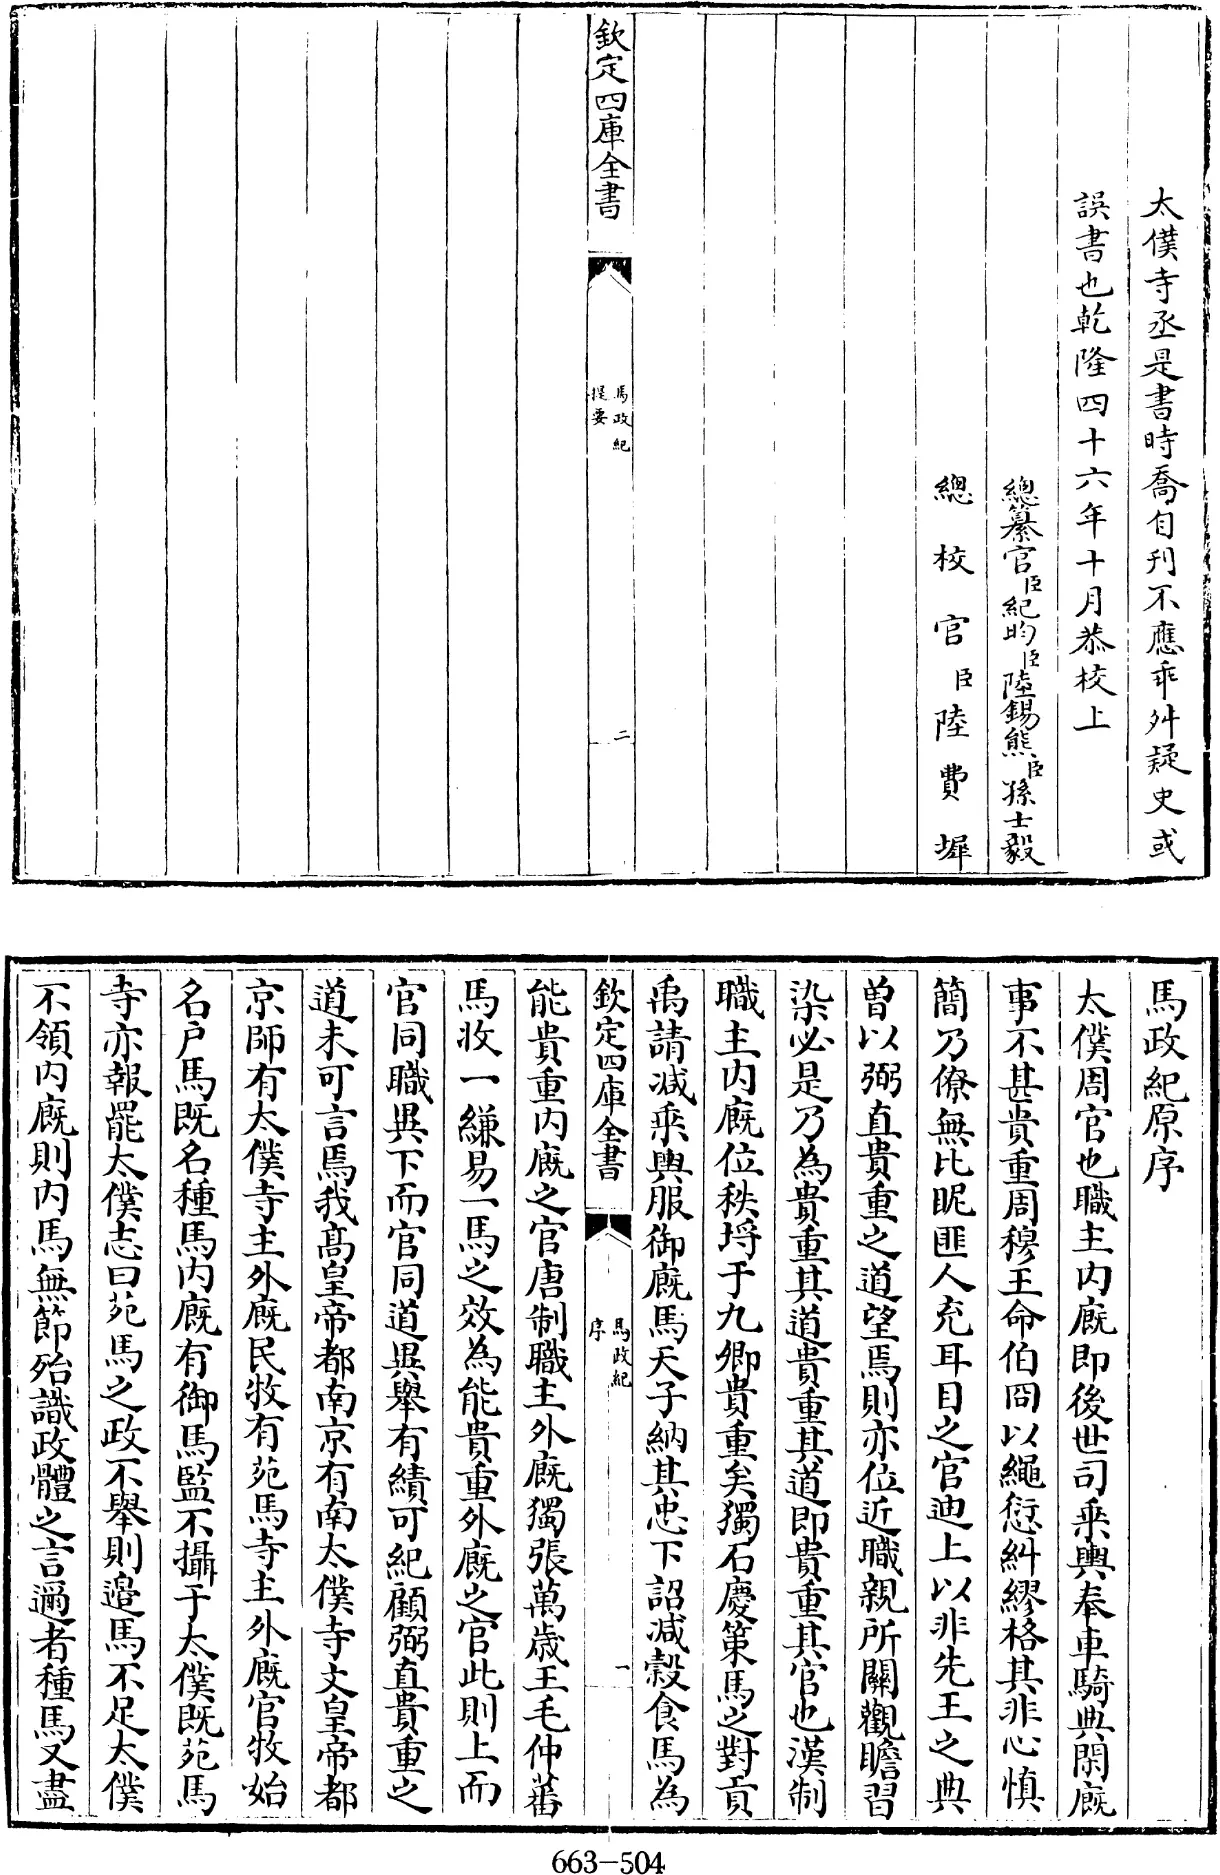 太僕寺丞是書時喬自刋不應乖舛疑史或
誤書也乾隆四十六年十月恭校上
總纂官臣紀昀臣陸錫熊臣孫士毅
總校官臣陸費墀
欽定四庫全書
馬政紀
提要
二
馬政紀原序
太僕周官也職主内廐即後世司乘輿奉車騎典閑廐
事不甚貴重周穆王命伯冏以繩愆糾繆格其非心慎
簡乃僚無比昵匪人充耳目之官迪上以非先王之典
曽以弼直貴重之道望焉則亦位近職親所關觀瞻習
染必是乃為貴重其道貴重其道即貴重其官也漢制
職主内廐位秩埒于九卿貴重矣獨石慶策馬之對貢
禹請减乘輿服御廐馬天子納其忠下詔减穀食馬為
欽定四庫全書
馬政紀
序
一
能貴重内廐之官唐制職主外廐獨張萬歳王毛仲蕃
馬牧一縑易一馬之效為能貴重外廐之官此則上而
官同職異下而官同道異舉有績可紀顧弼直貴重之
道未可言焉我髙皇帝都南京有南太僕寺文皇帝都
京師有太僕寺主外廐民牧有苑馬寺主外廐官牧始
名户馬既名種馬内廐有御馬監不攝于太僕既苑馬
寺亦報罷太僕志曰苑馬之政不舉則邉馬不足太僕
不領内廐則内馬無節殆識政體之言邇者種馬又盡
663-504